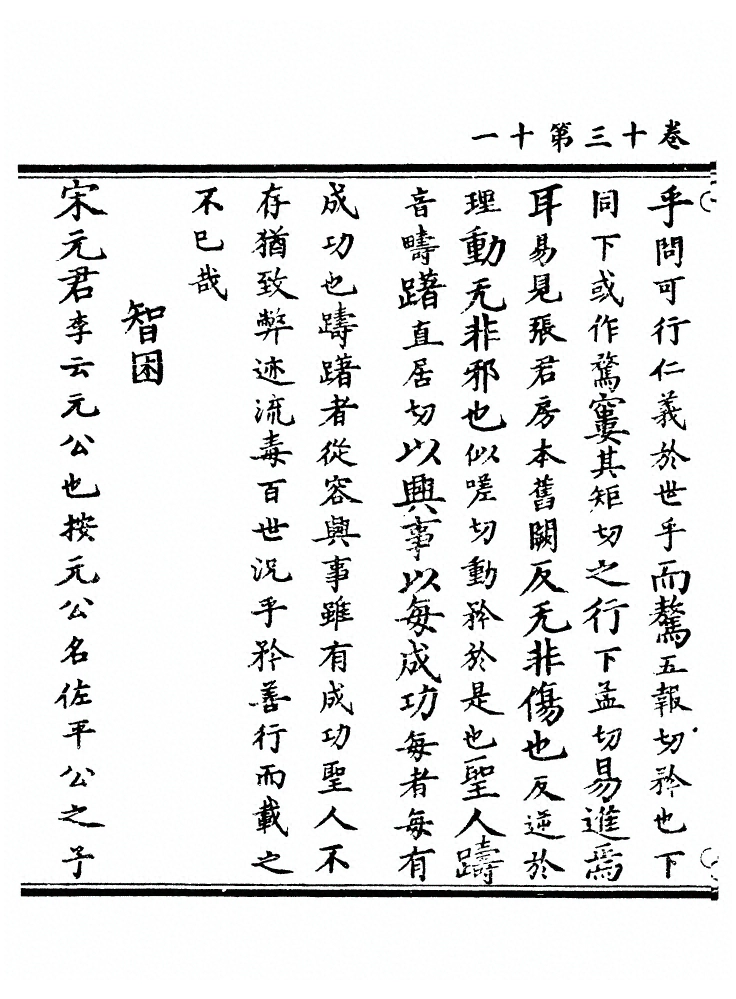 卷十三第十一
乎問可行仁義於世乎而驁五報切矜也下
同下或作驁窶其矩切之行下孟切易進焉
耳易見張君房本舊闕反无非傷也反逆於
理動无非邪也似嗟切動矜於是也聖人躊
音疇躇直居切以興事以每成功每者每有
成功也躊躇者從容興事雖有成功聖人不
存猶致弊迹流毒百世況乎矜善行而載之
不已哉
智困
宋元君李云元公也按元公名佐平公之子